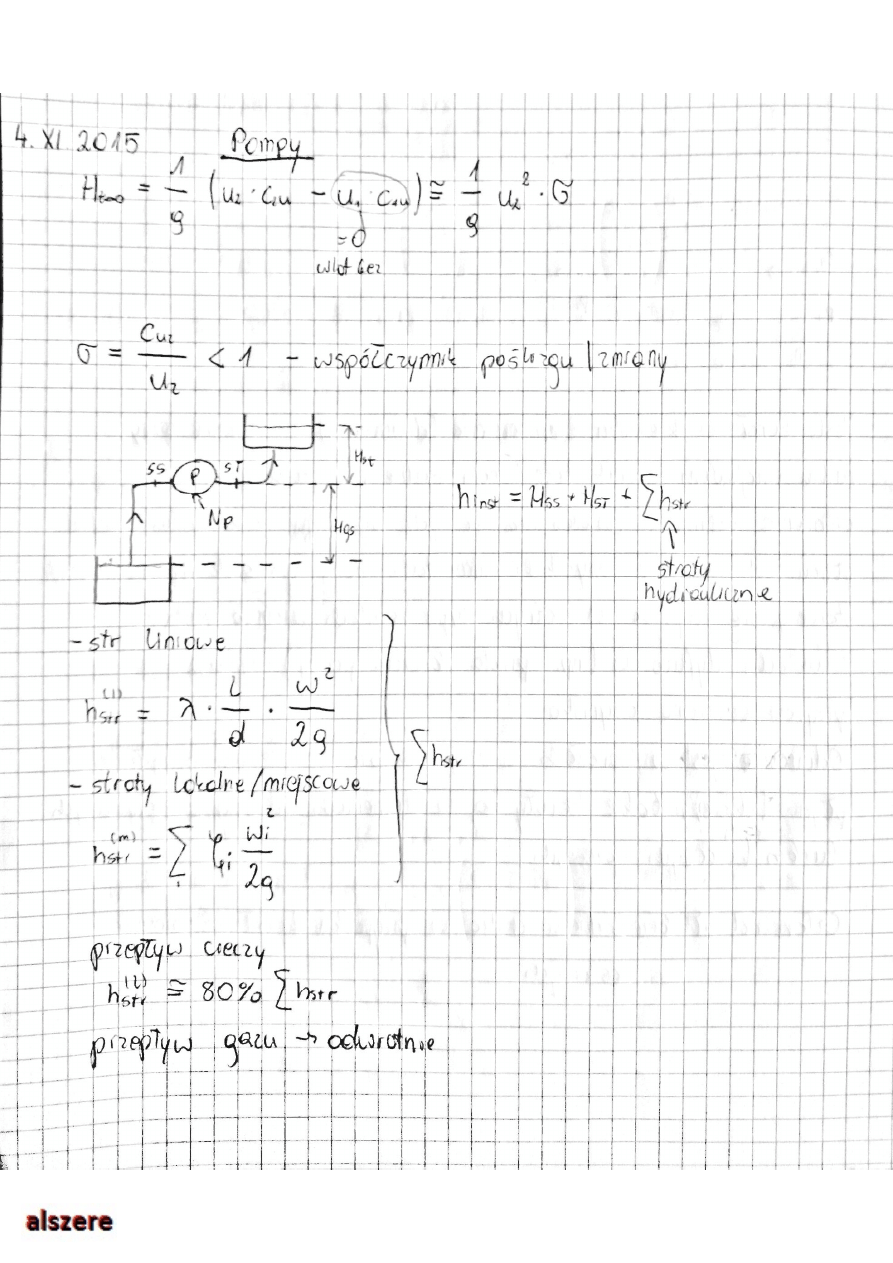 4. XI 2015 Pompy
Ht∞ = 1/g (u₂ · c₂u − u₁ · c₁u) ≅ 1/g u₂² · σ
=0
wlot bez
σ = Cu₂/u₂ < 1 – współczynnik poślizgu / zmiany
Hst
SS P ST
Np
HGS
hinst = HSS + HST + ∑hstr
straty
hydrauliczne
– str liniowe
hstr⁽ˡ⁾ = λ · L/d · w²/2g
∑hstr
– straty lokalne/miejscowe
hstr⁽ᵐ⁾ = ∑ᵢ ξᵢ wᵢ²/2g
przepływ cieczy
hstr⁽ˡ⁾ ≅ 80% ∑hstr
przepływ gazu → odwrotnie
alszere